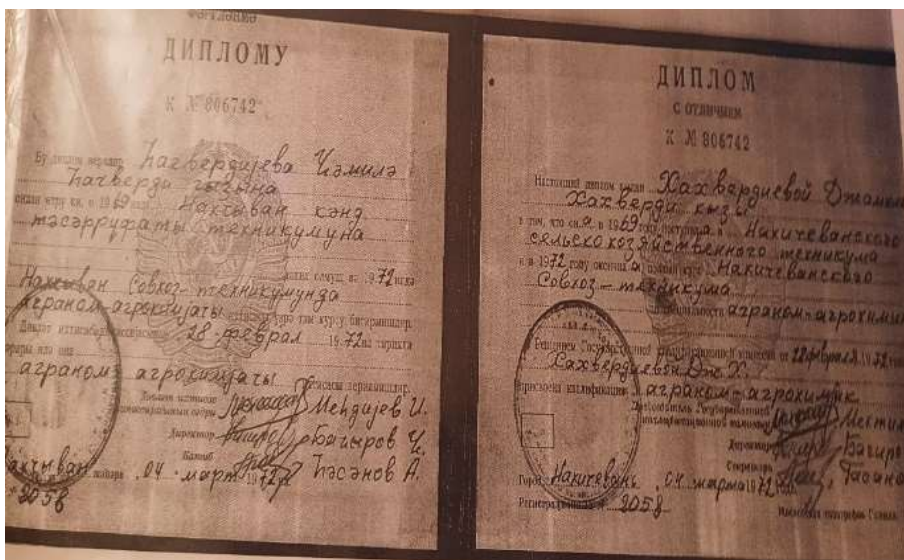 ДИПЛОМУ
К № 806742
Бу диплом верилир Һагвердијева Ҹәмилә
Һагверди гызына
1969 Нахчыван кәнд
тәсәррүфаты техникумуна
1972
Нахчыван Совхоз-техникумунда
аграном-агрокимјачы үзрә там курсу битирмишдир.
28 феврал 1972
аграном агрокимјачы верилмишдир.
Меһдијев И.
Директор Бағыров Ч.
Катиб Һәсәнов А.
Нахчыван шәһәри 04 март 1972
2058
ДИПЛОМ
С ОТЛИЧИЕМ
К № 806742
Настоящий диплом выдан Хахвердиевой
Хахверди кызы
в том, что она в 1969 году поступила в Накичеванского
сельскохозяйственного техникума
и в 1972 году окончила полный курс Накичеванского
Совхоз-техникума
по специальности аграном-агрохимик
Решением Государственной квалификационной комиссии от 28 февраля 1972
Хахвердиевой Дж. Х.
присвоена квалификация аграном-агрохимик
Председатель Государственной
квалификационной комиссии
Директор
Секретарь
Город Накичевань, 04 марта 1972 года
Регистрационный № 2058